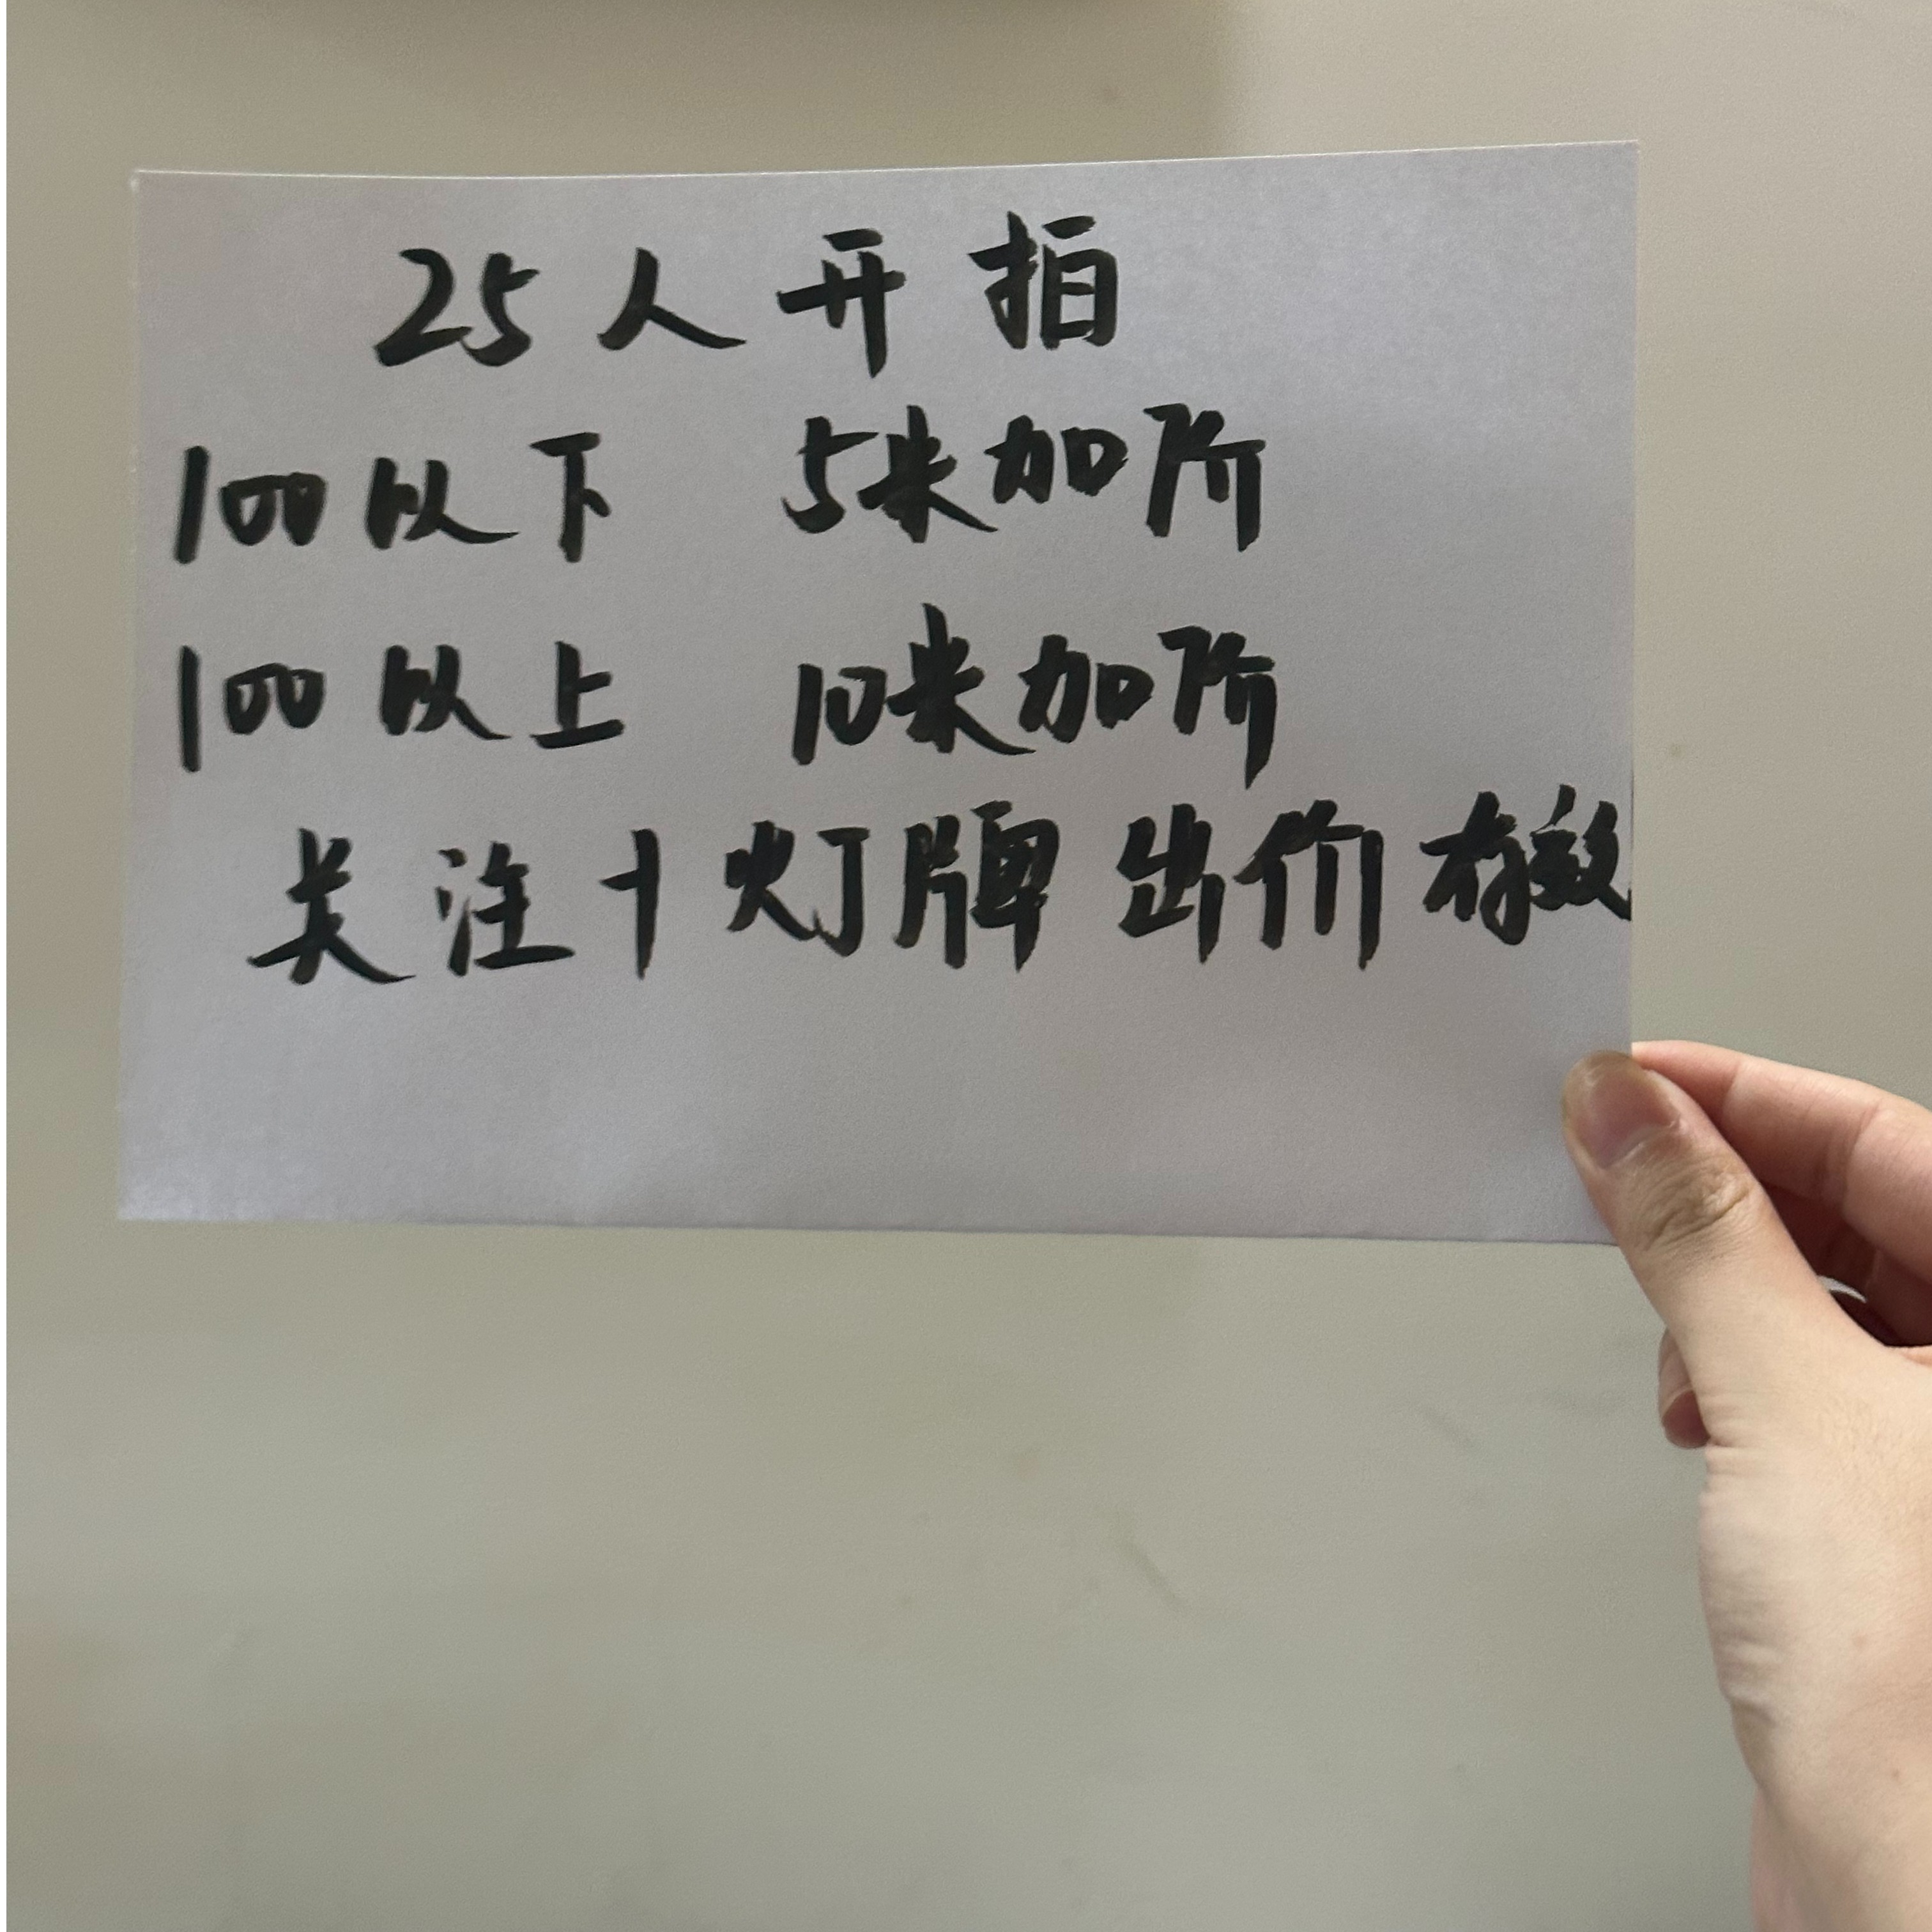 25人开拍
100以下 5米加阶
100以上 10米加阶
关注+灯牌 出价有效